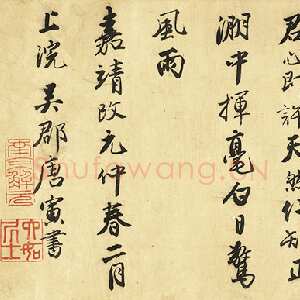 君心即許天然
中揮毫白日驚
風雨
嘉靖改元仲春二月
上浣吳郡唐寅書
六如居士
Shufawang.CN